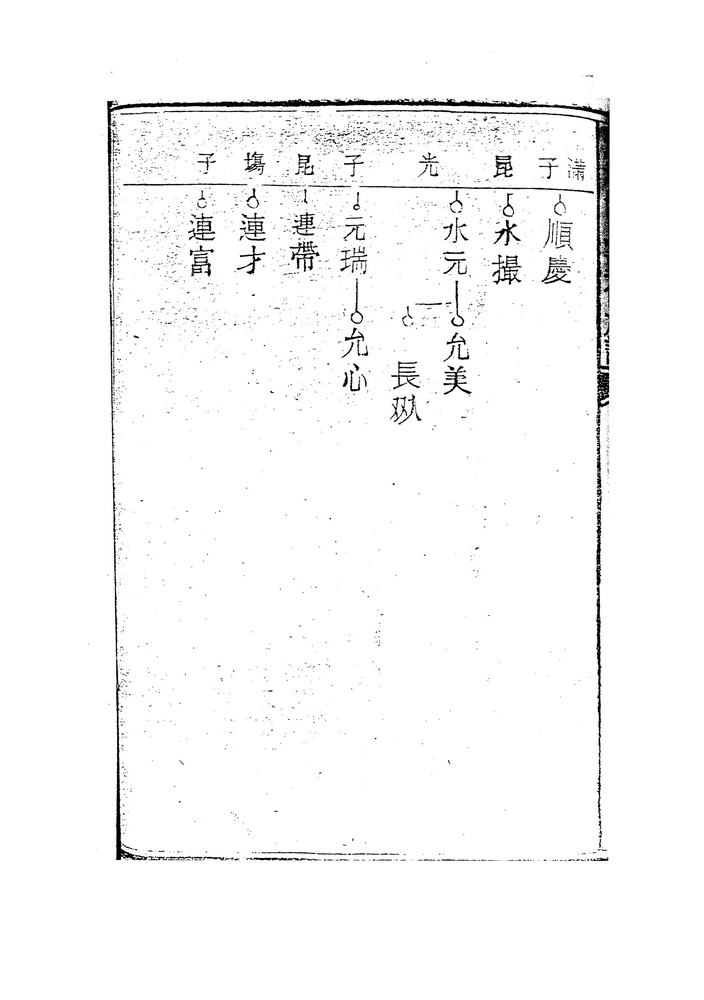 滿子
順慶
昆
水撮
光
水元
允美
長㕠
子
元瑞
允心
昆
連帶
塲
連才
子
連富